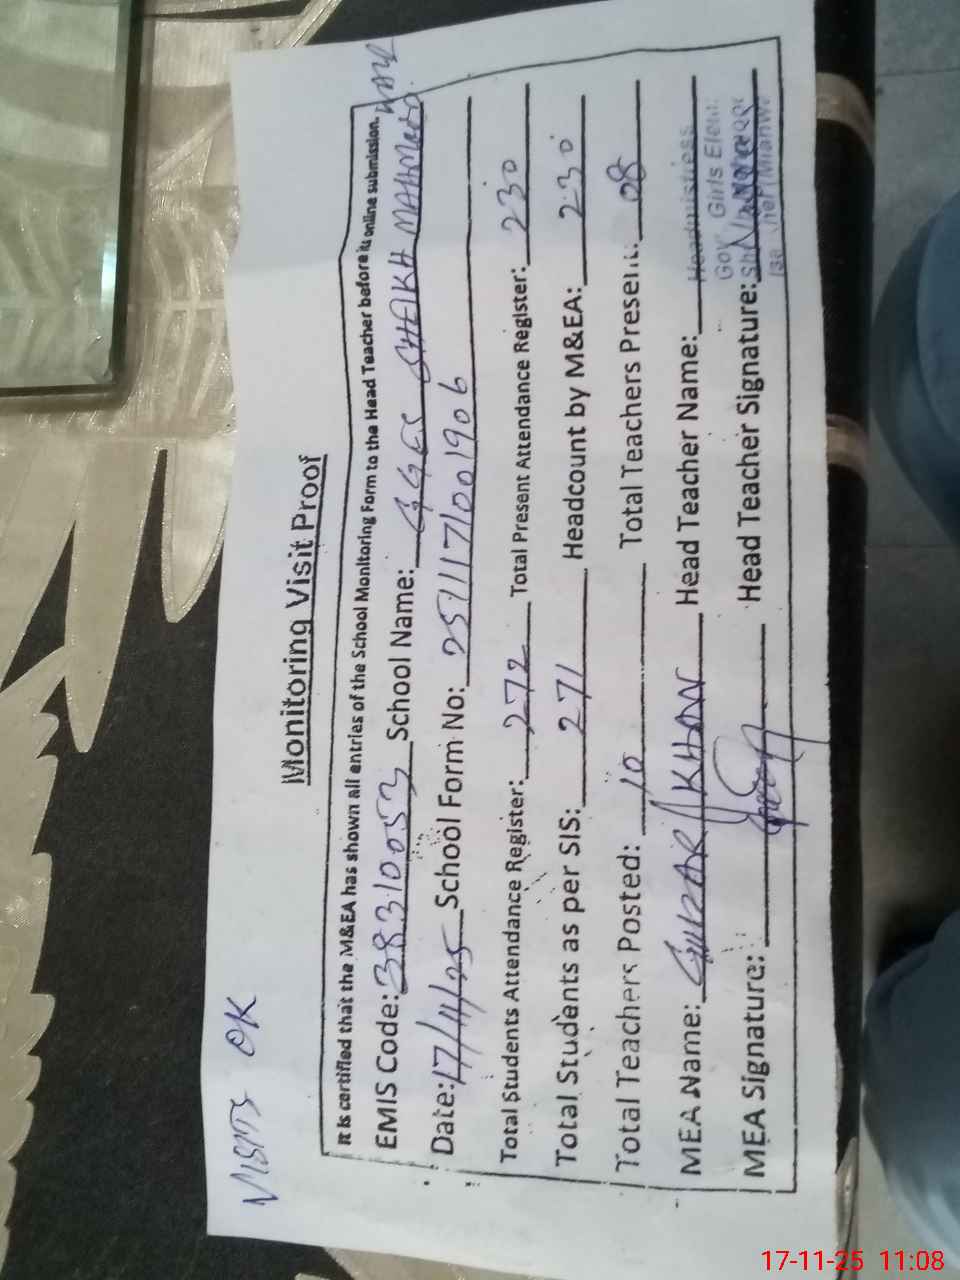 OK
Monitoring Visit Proof
It is certified that the M&EA has shown all entries of the School Monitoring Form to the Head Teacher before its online submission.
EMIS Code: 38310053 School Name: GGES SHEIKH MAHMOOD WALA
Date: 17/11/25 School Form No: 251117/001906
Total Students Attendance Register: 272 Total Present Attendance Register: 230
Total Students as per SIS: 271 Headcount by M&EA: 230
Total Teachers Posted: 10 Total Teachers Present: 08
MEA Name: GULZAR KHAN Head Teacher Name: Headmistress
Gov. Girls Elem:
MEA Signature: Head Teacher Signature:
17-11-25 11:08